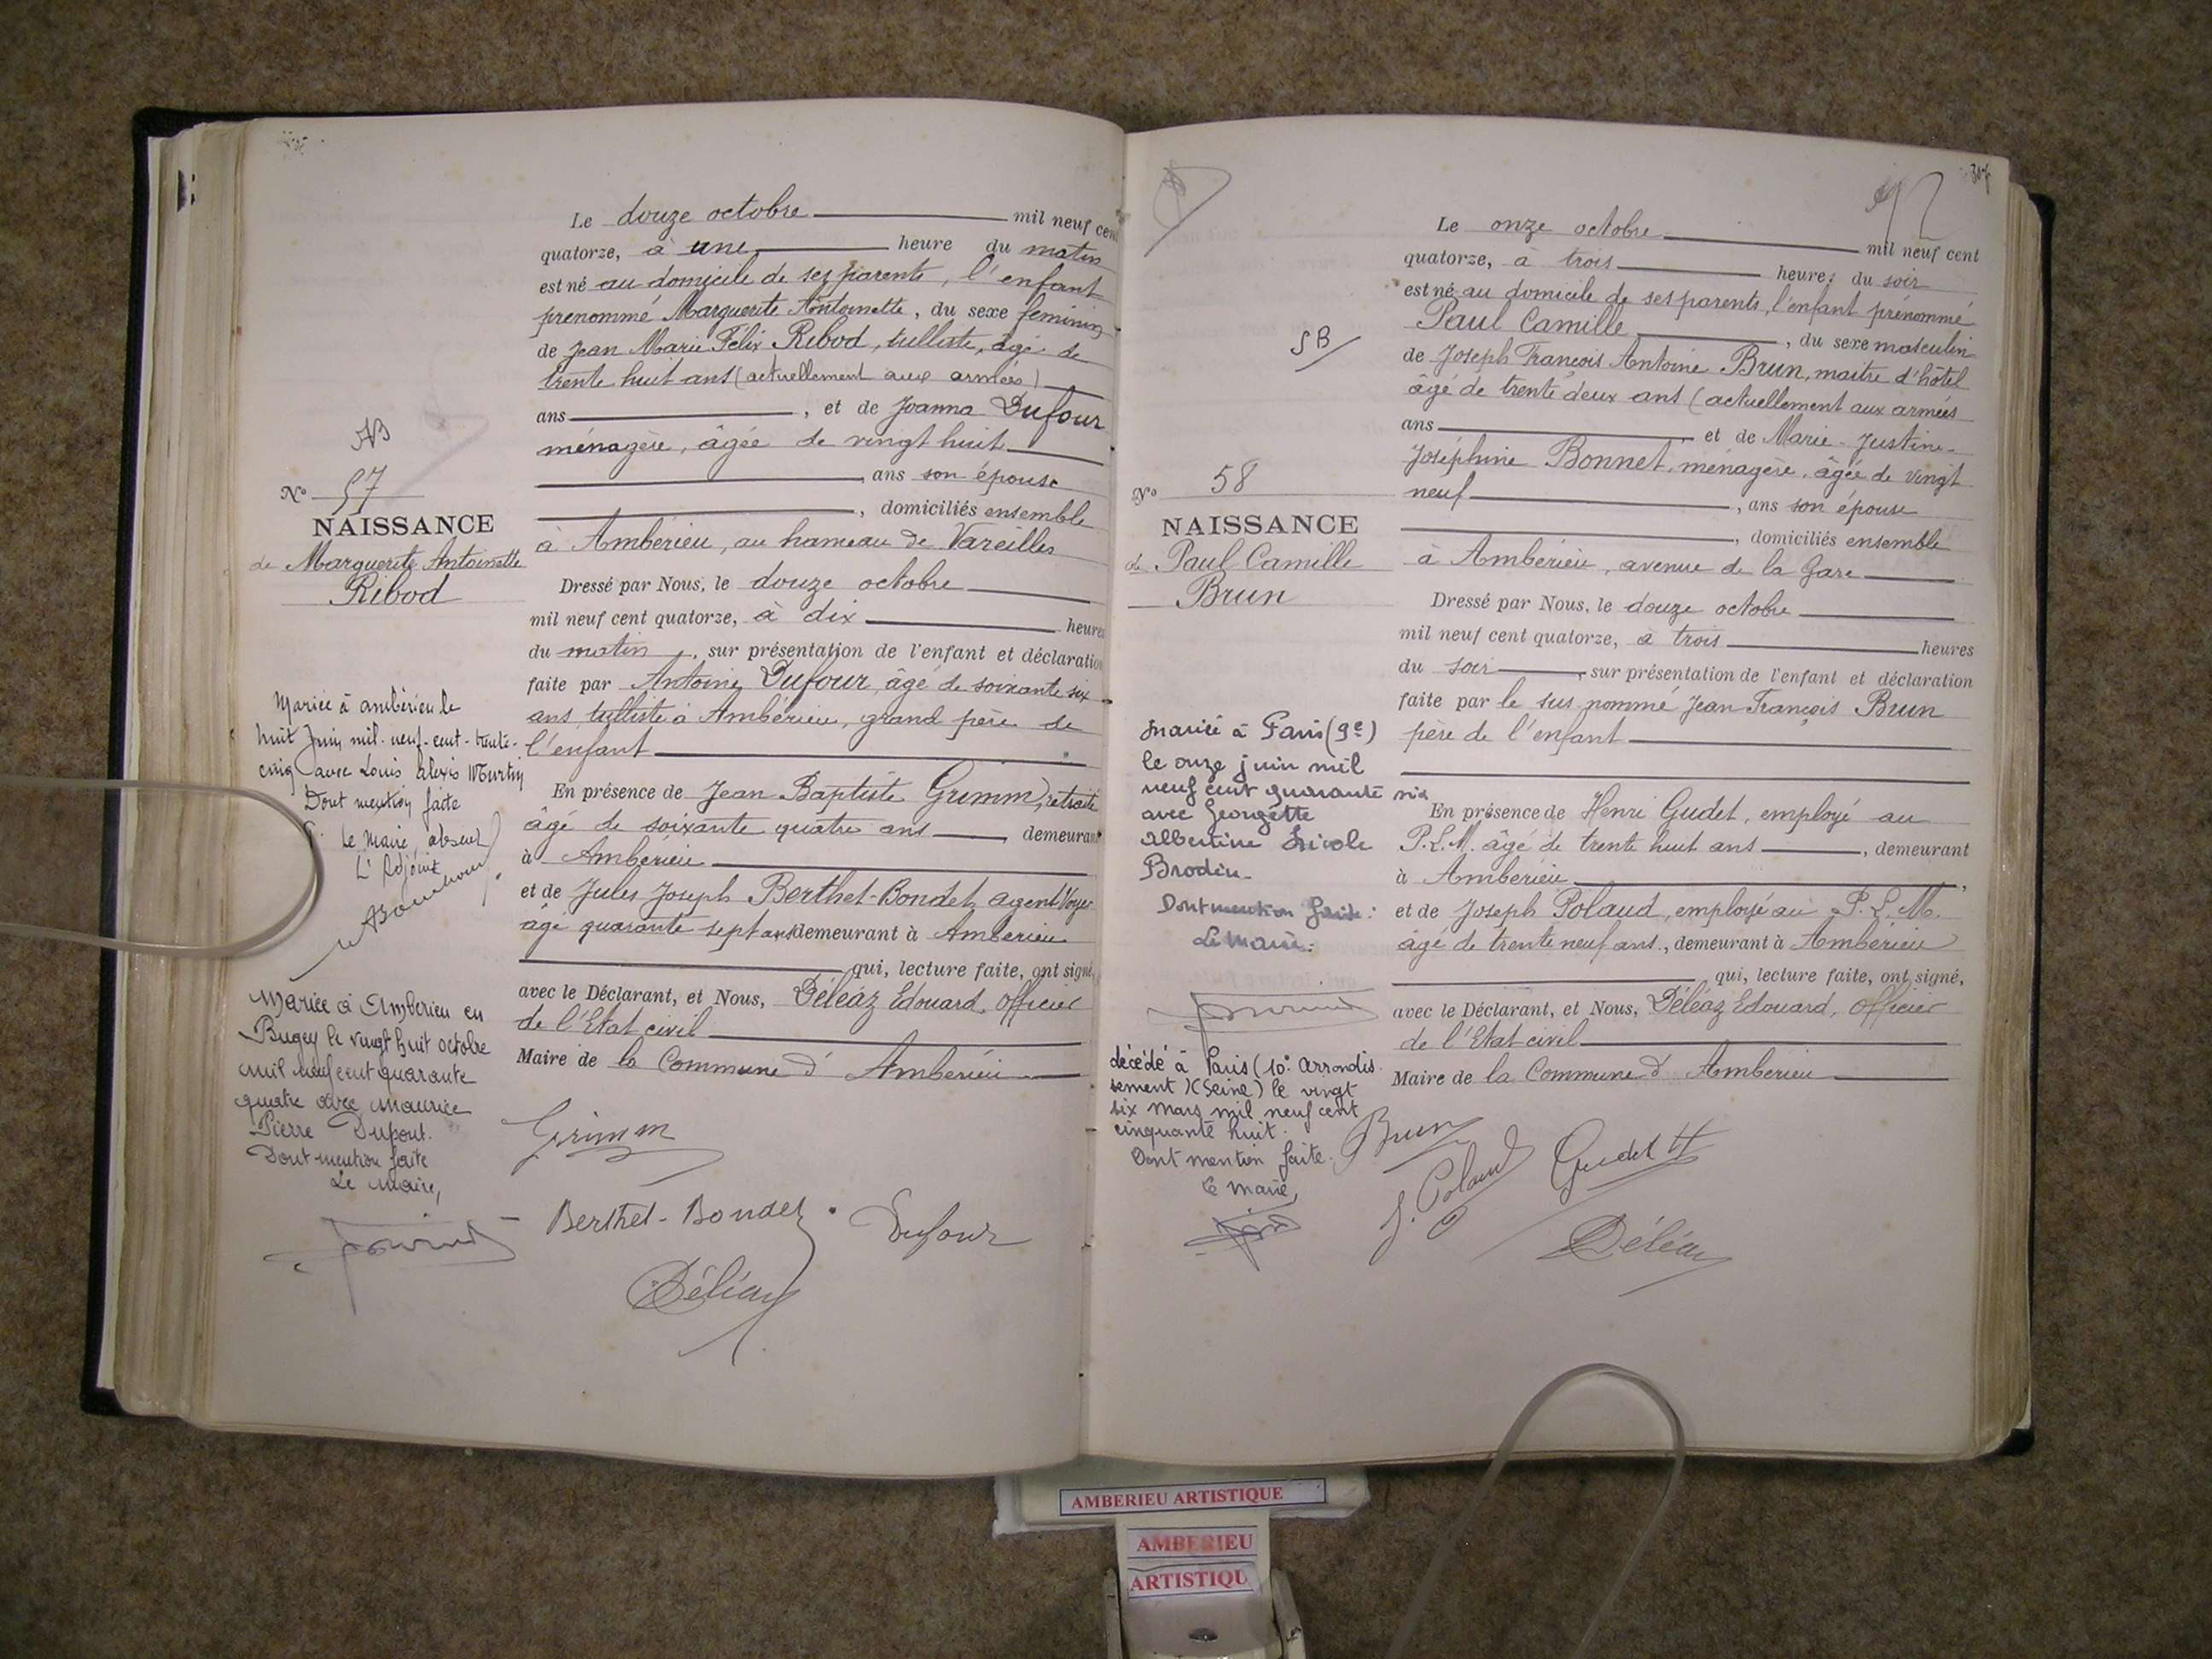 Le douze octobre mil neuf cent
quatorze, à une heure du matin
est né au domicile de ses parents, l'enfant
prénommé Marguerite Antoinette, du sexe féminin
de Jean Marie Félix Ribod, tulliste, âgé de
trente huit ans (actuellement aux armées)
ans, et de Joanna Dufour
ménagère, âgée de vingt huit
, ans son épouse
, domiciliés ensemble
à Ambérieu, au hameau de Vareilles
Dressé par Nous, le douze octobre
mil neuf cent quatorze, à dix heures
du matin, sur présentation de l'enfant et déclaration
faite par Antoine Dufour, âgé de soixante six
ans tulliste à Ambérieu, grand père de
l'enfant
En présence de Jean Baptiste Grimm, retraité
âgé de soixante quatre ans demeurant
à Ambérieu
et de Jules Joseph Berthet-Bondet, agent Voyer
âgé quarante sept ans demeurant à Ambérieu
qui, lecture faite, ont signé,
avec le Déclarant, et Nous, Déléaz Edouard, officier
de l'Etat civil
Maire de la Commune d'Ambérieu
Grimm
Berthet-Bondet
Dufour
Déléaz
N° 57
NAISSANCE
de Marguerite Antoinette
Ribod
Mariée à ambérieu le
huit Juin mil-neuf-cent-trente-
cinq avec Louis Alexis
Dont mention faite
Le Maire absent
L'Adjoint
Mariée à Ambérieu en
Bugey le vingt huit octobre
mil neuf cent quarante
quatre avec Maurice
Pierre Dupont.
Dont mention faite
Le Maire,
307
Le onze octobre mil neuf cent
quatorze, à trois heures du soir
est né au domicile de ses parents, l'enfant prénommé
Paul Camille, du sexe masculin
de Joseph François Antoine Brun, maître d'hôtel
âgé de trente deux ans (actuellement aux armées
ans et de Marie-Justine-
Joséphine Bonnet, ménagère, âgée de vingt
neuf, ans son épouse
, domiciliés ensemble
à Ambérieu, avenue de la Gare
Dressé par Nous, le douze octobre
mil neuf cent quatorze, à trois heures
du soir, sur présentation de l'enfant et déclaration
faite par le sus nommé Jean François Brun
père de l'enfant
En présence de Henri Gudet, employé au
P.L.M. âgé de trente huit ans, demeurant
à Ambérieu,
et de Joseph Polaud, employé au P.L.M.
âgé de trente neuf ans., demeurant à Ambérieu
, qui, lecture faite, ont signé,
avec le Déclarant, et Nous, Déléaz Edouard, officier
de l'Etat civil
Maire de la Commune d'Ambérieu
Brun
J. Polaud
Gudet H
Déléaz
SB
N° 58
NAISSANCE
de Paul Camille
Brun
Marié à Paris (9e)
le onze juin mil
neuf cent quarante six
avec Georgette
Albertine Nicole
Brodin-
Dont mention faite:
Le Maire:
décédé à Paris (10e arrondis
sement) (Seine) le vingt
six mars mil neuf cent
cinquante huit.
Dont mention faite.
Le Maire,
AMBERIEU ARTISTIQUE
AMBERIEU
ARTISTIQU